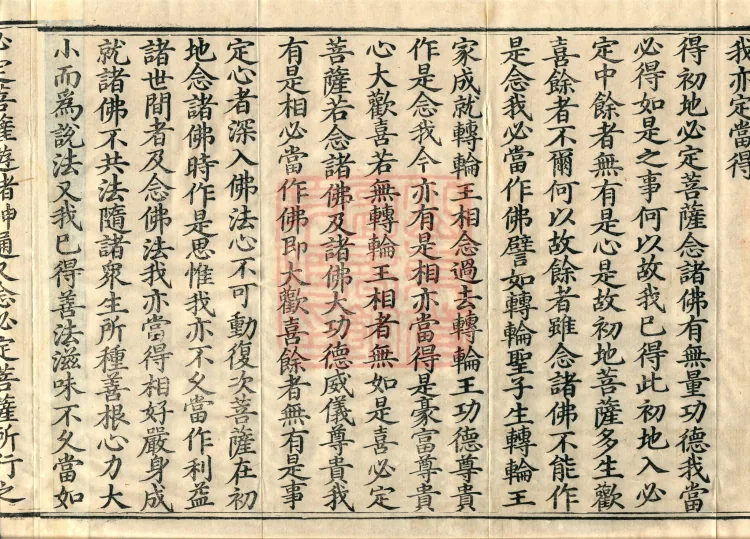 我亦定當得
得初地必定菩薩念諸佛有無量功德我當
必得如是之事何以故我已得此初地入必
定中餘者無有是心是故初地菩薩多生歡
喜餘者不爾何以故餘者雖念諸佛不能作
是念我必當作佛譬如轉輪聖子生轉輪王
家成就轉輪王相念過去轉輪王功德尊貴
作是念我今亦有是相亦當得是豪富尊貴
心大歡喜若無轉輪王相者無如是喜必定
菩薩若念諸佛及諸佛大功德威儀尊貴我
有是相必當作佛即大歡喜餘者無有是事
定心者深入佛法心不可動復次菩薩在初
地念諸佛時作是思惟我亦不久當作利益
諸世間者及念佛法我亦當得相好嚴身成
就諸佛不共法隨諸衆生所種善根心力大
小而爲說法又我已得善法滋味不久當如
必定菩薩遊諸神通又念必定菩薩所行之